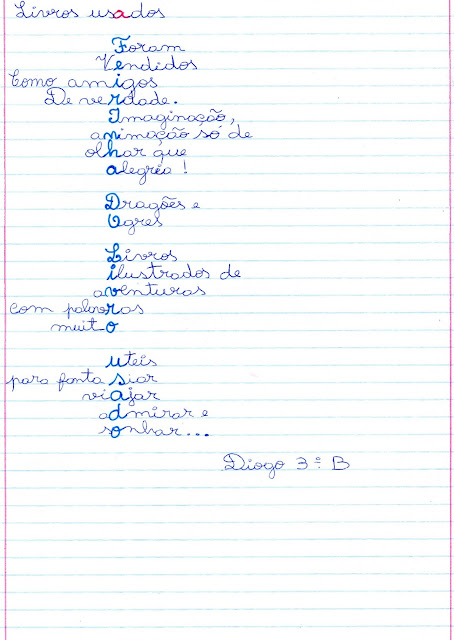 Livros usados
Foram
Vendidos
Como amigos
De verdade.
Imaginação,
animação só de
olhar que
alegria!
Dragões e
Ogres
Livros
ilustrados de
aventuras
com palavras
muito
uteis
para fanta siar
viajar
admirar e
sonhar...
Diogo 3º B